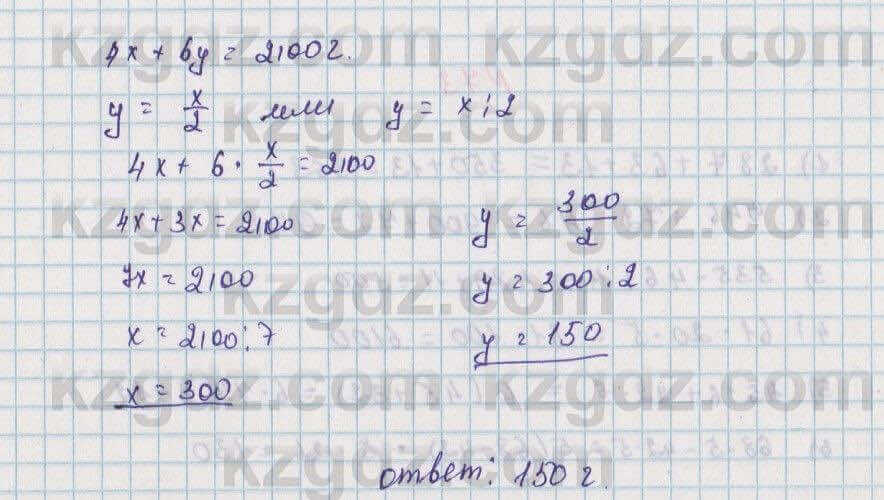 4x + 6y = 2100 г.
y = x/2 или y = x : 2
4x + 6 · x/2 = 2100
4x + 3x = 2100
7x = 2100
x = 2100 : 7
x = 300
y = 300/2
y = 300 : 2
y = 150
ответ: 150 г.
kzgdz.com